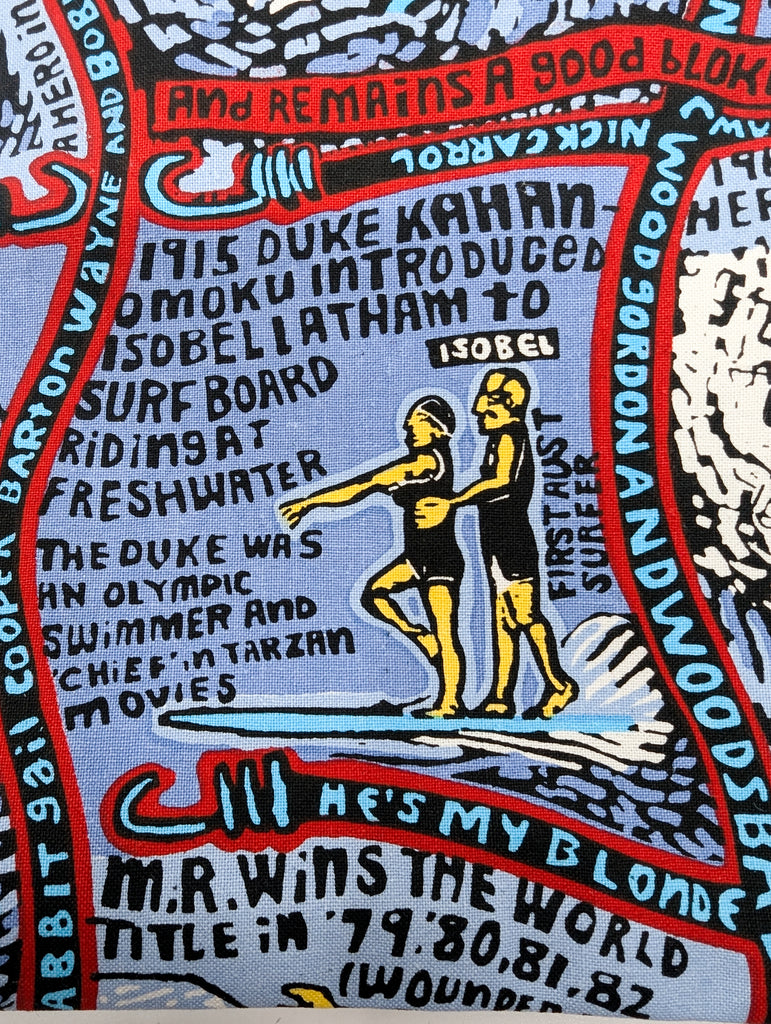 A HERO in
BARTON WAYNE AND BOB
And REMAINS A good bLOK
NICK CARROL
1915 DUKE KAHAN-
OMOKU INTRODUCED
ISOBEL LATHAM to
SURFBOARD
RiDING AT
FRESHWATER
ISOBEL
FIRST AUST
SURFER
THE DUKE WAS
AN OLYMPIC
SWiMMER AND
'CHiEF' in TARZAN
MOViES
WOOD gORDON AND WOODS
HE'S MY BLONDE
ABBIT gail COOPER
M.R. Wins THE WORLD
TITLE iN '79.'80,81,82
(WOUNDED